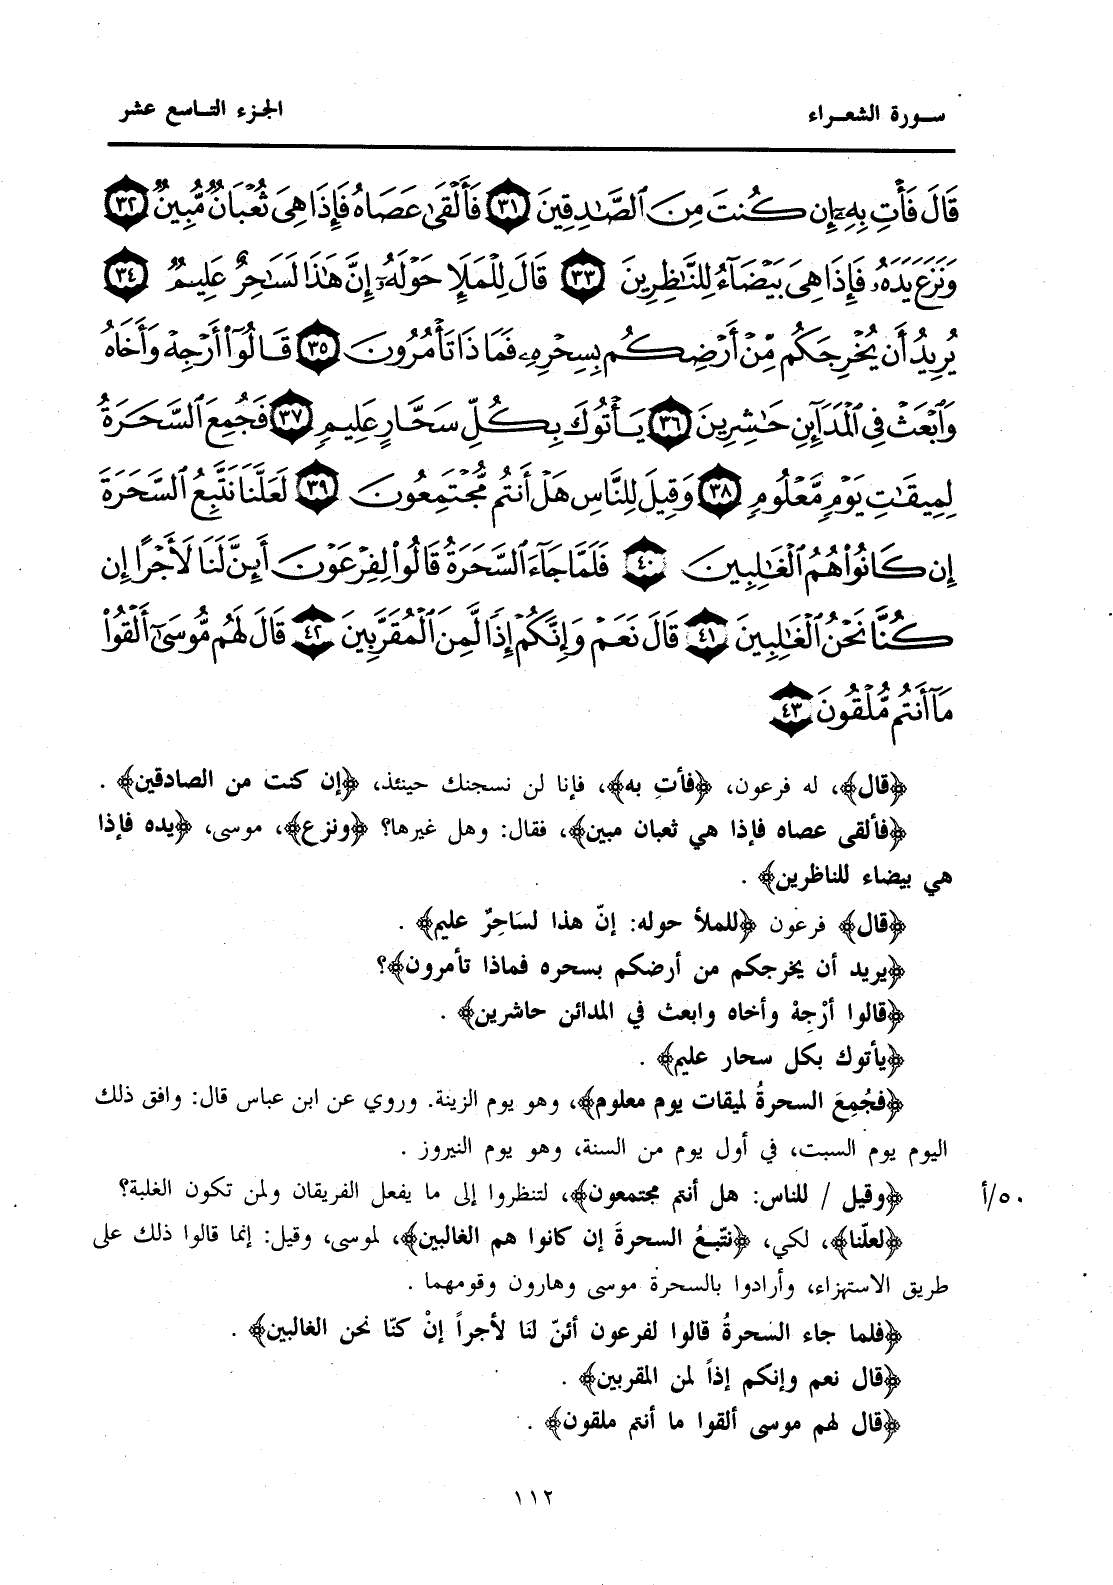 سورة الشعراء
الجزء التاسع عشر
قَالَ فَأْتِ بِهِۦٓ إِن كُنتَ مِنَ ٱلصَّٰدِقِينَ ٣١ فَأَلْقَىٰ عَصَاهُ فَإِذَا هِىَ ثُعْبَانٌ مُّبِينٌ ٣٢
وَنَزَعَ يَدَهُۥ فَإِذَا هِىَ بَيْضَآءُ لِلنَّٰظِرِينَ ٣٣ قَالَ لِلْمَلَإِ حَوْلَهُۥٓ إِنَّ هَٰذَا لَسَٰحِرٌ عَلِيمٌ ٣٤
يُرِيدُ أَن يُخْرِجَكُم مِّنْ أَرْضِكُم بِسِحْرِهِۦ فَمَاذَا تَأْمُرُونَ ٣٥ قَالُوٓا۟ أَرْجِهْ وَأَخَاهُ
وَٱبْعَثْ فِى ٱلْمَدَآئِنِ حَٰشِرِينَ ٣٦ يَأْتُوكَ بِكُلِّ سَحَّارٍ عَلِيمٍ ٣٧ فَجُمِعَ ٱلسَّحَرَةُ
لِمِيقَٰتِ يَوْمٍ مَّعْلُومٍ ٣٨ وَقِيلَ لِلنَّاسِ هَلْ أَنتُم مُّجْتَمِعُونَ ٣٩ لَعَلَّنَا نَتَّبِعُ ٱلسَّحَرَةَ
إِن كَانُوا۟ هُمُ ٱلْغَٰلِبِينَ ٤٠ فَلَمَّا جَآءَ ٱلسَّحَرَةُ قَالُوا۟ لِفِرْعَوْنَ أَئِنَّ لَنَا لَأَجْرًا إِن
كُنَّا نَحْنُ ٱلْغَٰلِبِينَ ٤١ قَالَ نَعَمْ وَإِنَّكُمْ إِذًا لَّمِنَ ٱلْمُقَرَّبِينَ ٤٢ قَالَ لَهُم مُّوسَىٰٓ أَلْقُوا۟
مَآ أَنتُم مُّلْقُونَ ٤٣
﴿قال﴾، له فرعون، ﴿فأتِ به﴾، فإنا لن نسجنك حينئذ، ﴿إن كنت من الصادقين﴾ .
﴿فألقى عصاه فإذا هي ثعبان مبين﴾، فقال: وهل غيرها؟ ﴿ونزع﴾، موسى، ﴿يده فإذا
هي بيضاء للناظرين﴾ .
﴿قال﴾ فرعون ﴿للملأ حوله: إنّ هذا لسَاحِرٌ عليم﴾ .
﴿يريد أن يخرجكم من أرضكم بسحره فماذا تأمرون﴾؟
﴿قالوا أرْجِهْ وأخاه وابعث في المدائن حاشرين﴾ .
﴿يأتوك بكل سحار عليم﴾ .
﴿فجُمِعَ السحرةُ لميقات يوم معلوم﴾، وهو يوم الزينة. وروي عن ابن عباس قال: وافق ذلك
اليوم يوم السبت، في أول يوم من السنة، وهو يوم النيروز .
﴿وقيل / للناس: هل أنتم مجتمعون﴾، لتنظروا إلى ما يفعل الفريقان ولمن تكون الغلبة؟
٥٠/أ
﴿لعلّنا﴾، لكي، ﴿نتّبعُ السحرةَ إن كانوا هم الغالبين﴾، لموسى، وقيل: إنما قالوا ذلك على
طريق الاستهزاء، وأرادوا بالسحرة موسى وهارون وقومهما .
﴿فلما جاء السحرةُ قالوا لفرعون أئنّ لنَا لأجراً إنْ كنّا نحن الغالبين﴾ .
﴿قال نعم وإنكم إذاً لمن المقربين﴾ .
﴿قال لهم موسى ألقوا ما أنتم ملقون﴾ .
١١٢